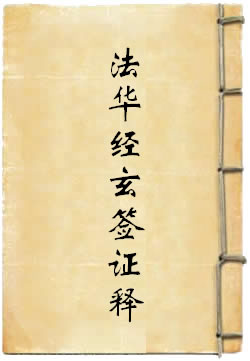 法华经玄签证释